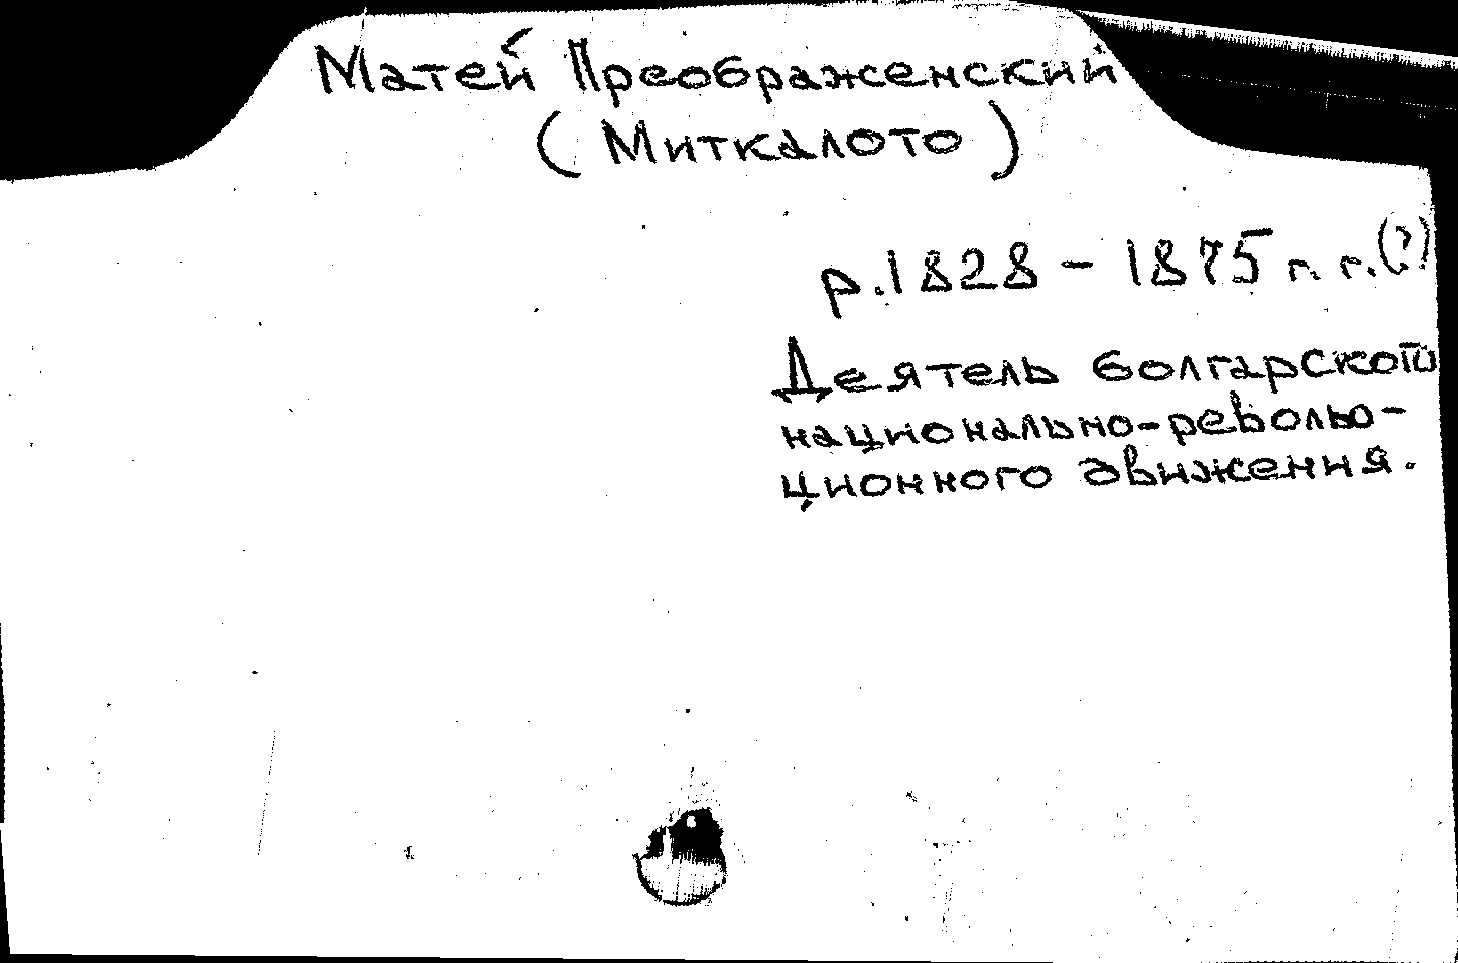 Матей Преображенский
( Миткалото )
р. 1828 - 1875 г. г. (?)
Деятель болгарской
национально-револью-
ционного движения.